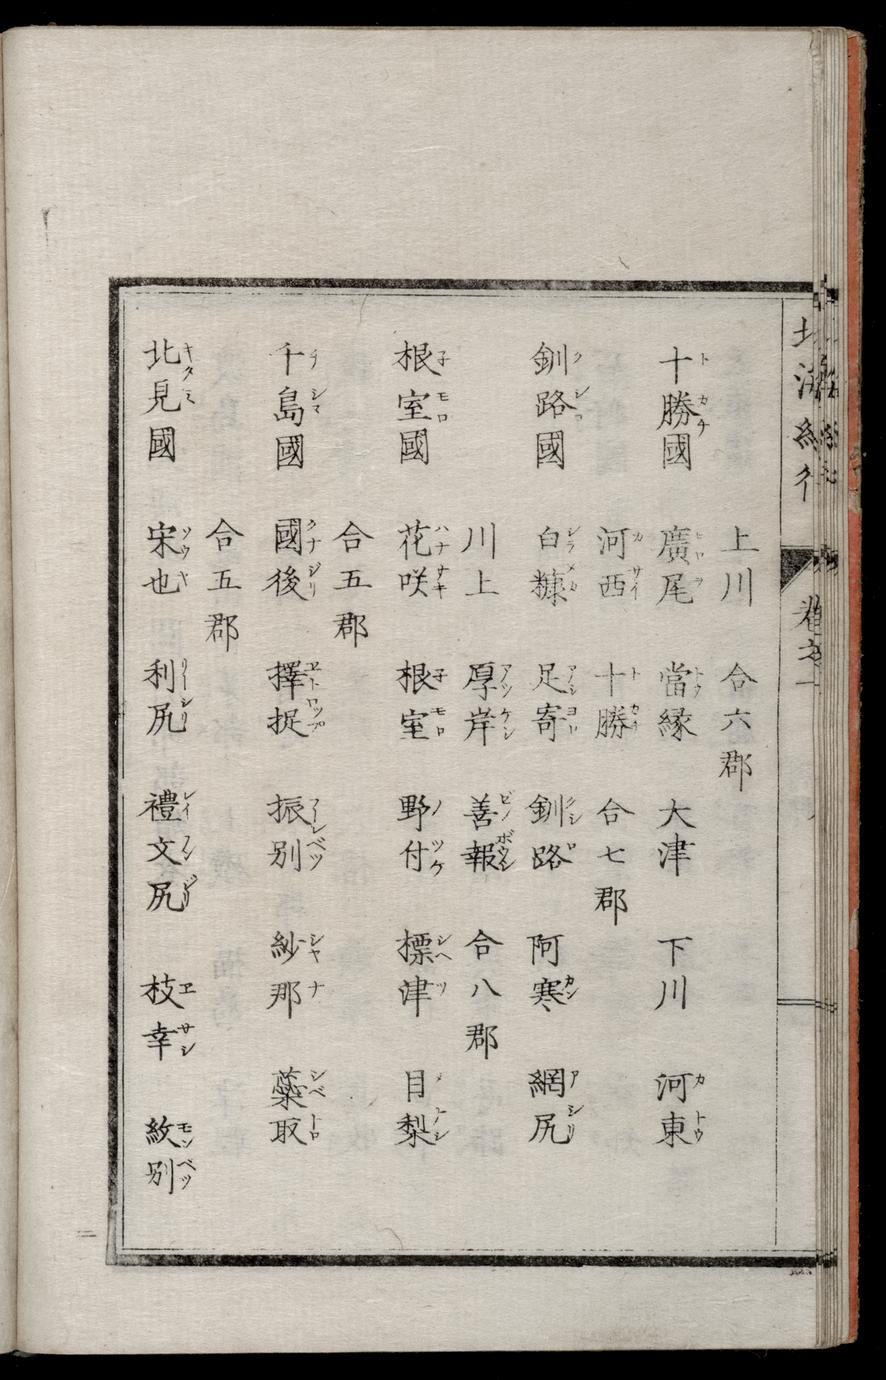 北海紀行 卷之一
上川 合六郡
十勝國 廣尾 當縁 大津 下川 河東
河西 十勝 合七郡
釧路國 白糠 足寄 釧路 阿寒 網尻
川上 厚岸 善報 合八郡
根室國 花咲 根室 野付 標津 目梨
合五郡
千島國 國後 擇捉 振別 紗那 蘂取
合五郡
北見國 宋也 利尻 禮文尻 枝幸 紋別